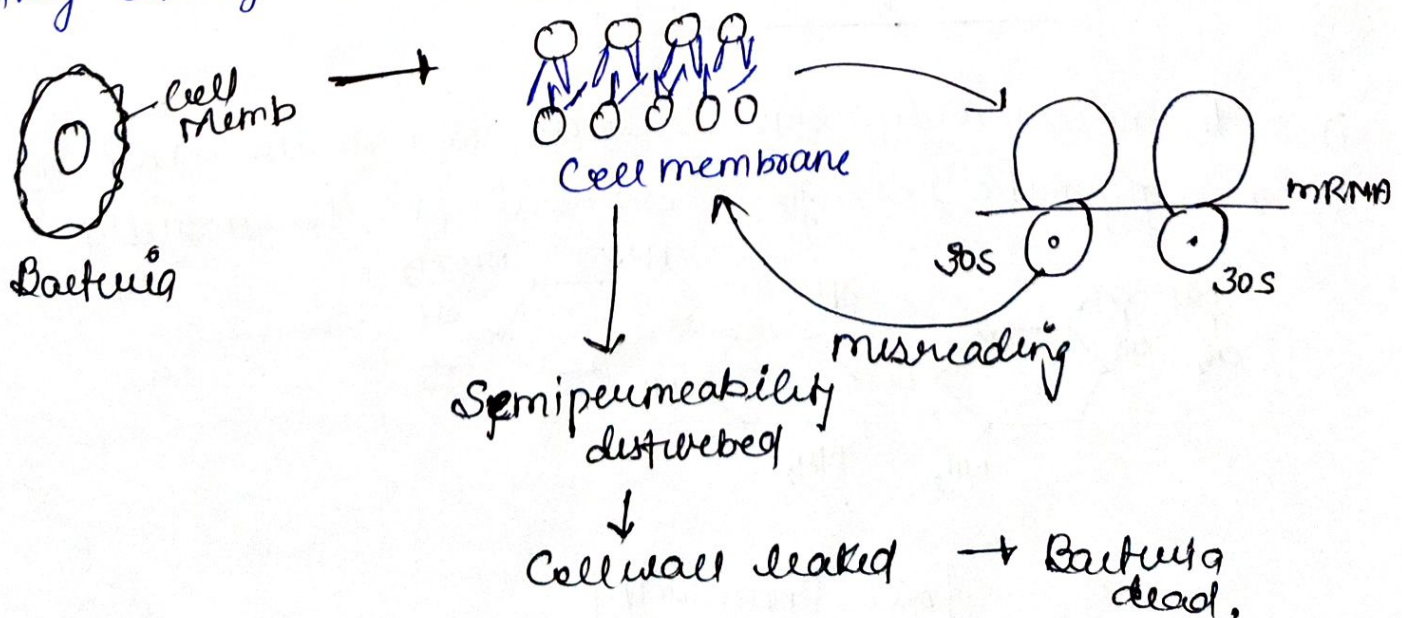 Cell
Memb
Bacteria
Cell membrane
mRNA
30S
30S
misreading
Semipermeability
disturbed
Cell wall leaked → Bacteria
dead.